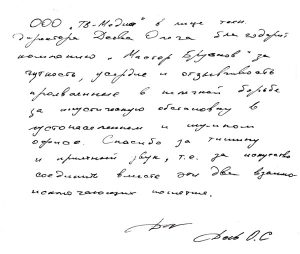 ООО „ТВ-Медиа" в лице техн.
директора Деева Олега благодарит
компанию „Мастер Брусков" за
чуткость, усердие и отзывчивость
проявленные в нелёгкой борьбе
за акустическую обстановку в
густонаселенном и шумном
офисе. Спасибо за тишину
и приятный звук, т.е. за искусство
соединить вместе эти два взаимо
исключающих понятия.
Деев О.С